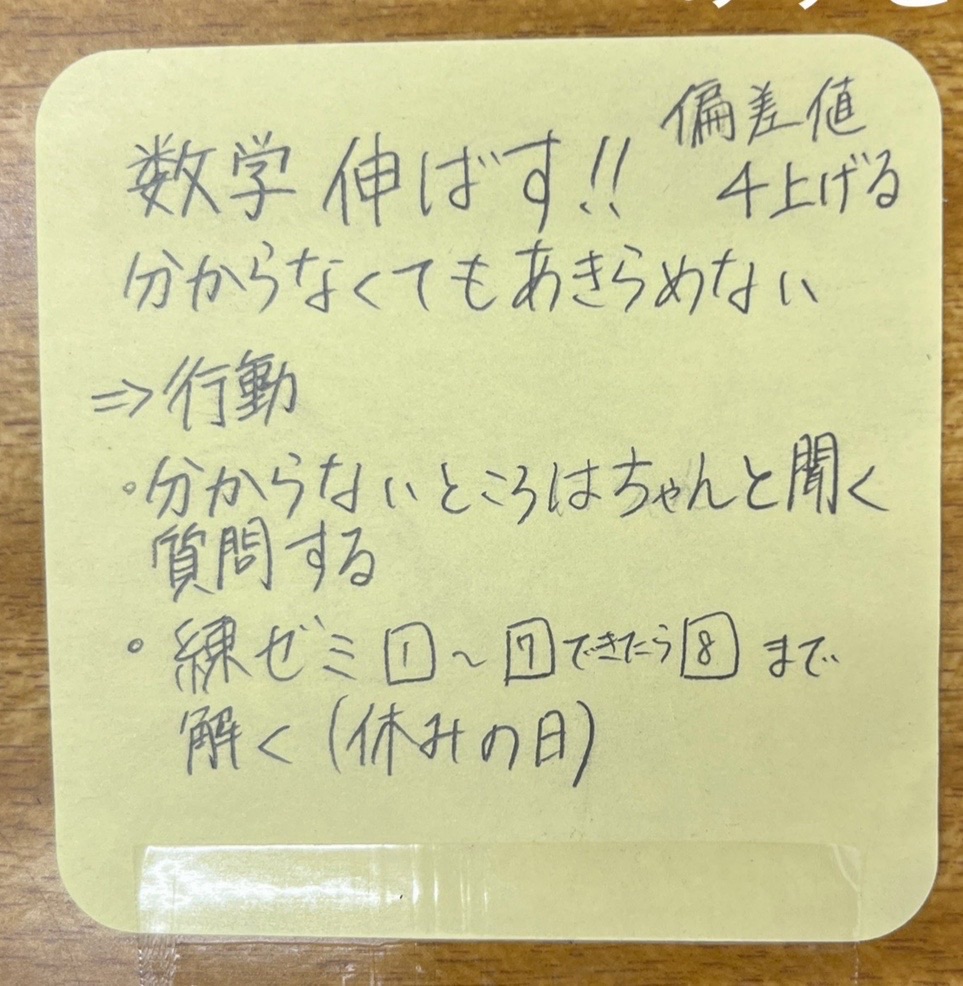 数学 伸ばす!! 偏差値
4上げる
分からなくてもあきらめない
⇒行動
・分からないところはちゃんと聞く
質問する
・練ゼミ 1 〜 7 できたら 8 まで
解く(休みの日)